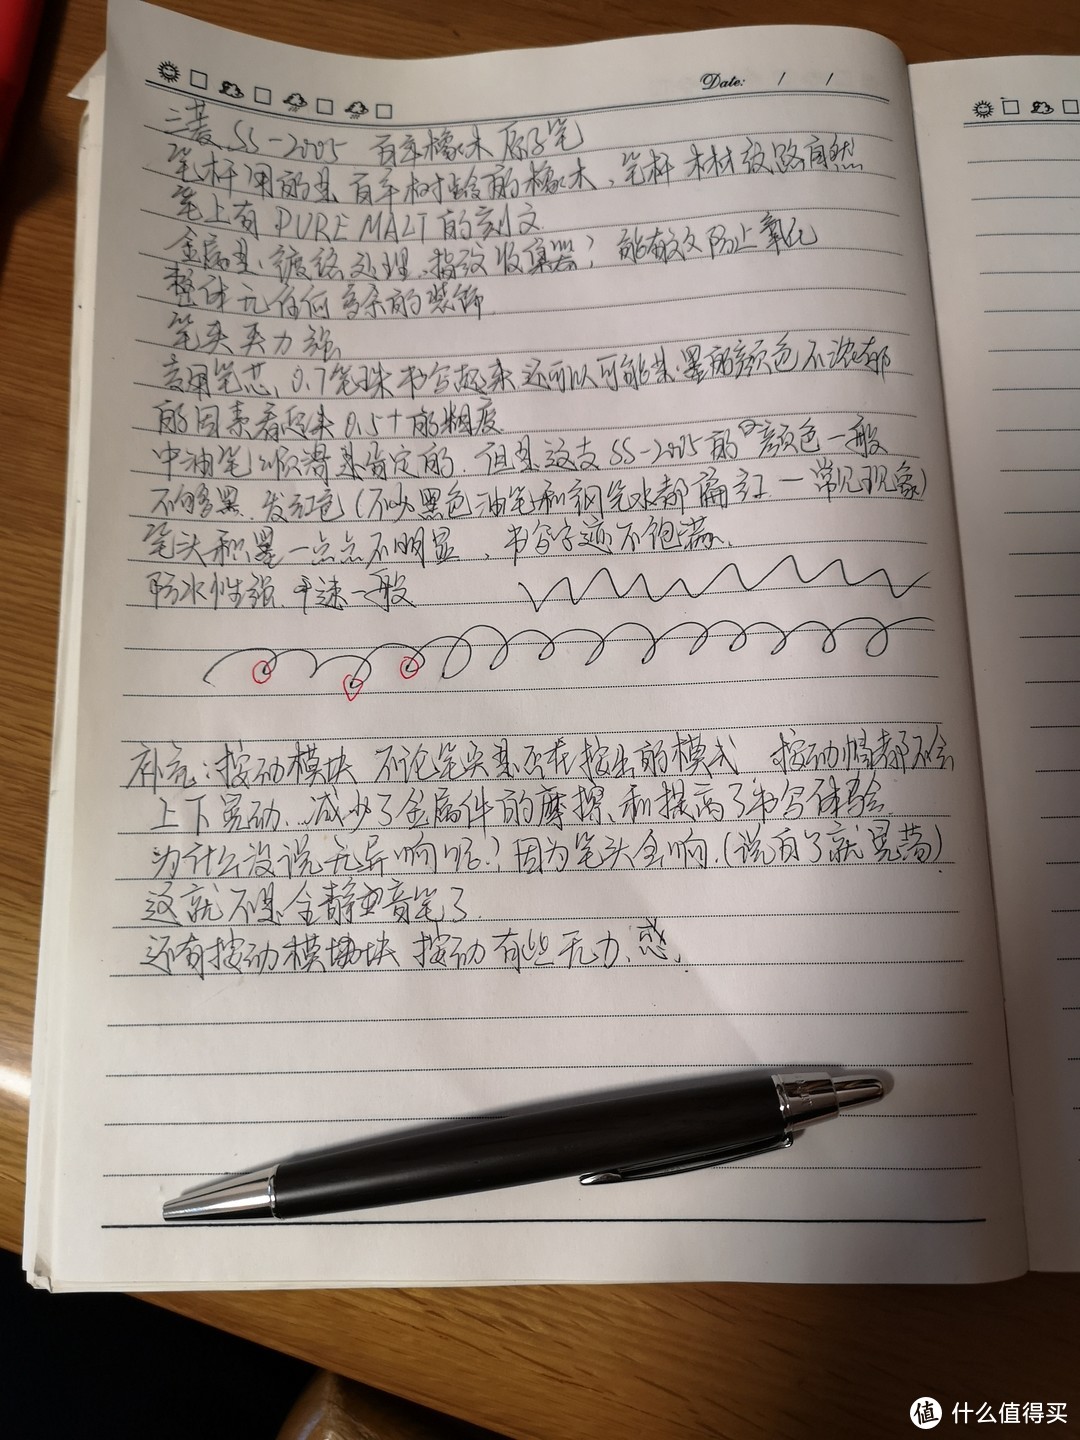 Date: / /
三菱 SS-2005 百年橡木原子笔
笔杆用的是百年树龄的橡木、笔杆木材纹路自然
笔上有 PURE MALT 的刻文
金属是镀铬处理、指纹收集器; 能有效防止氧化
整体无任何多余的装饰
笔夹夹力强
笔芯、0.7笔珠书写起来还可以可能是墨的颜色不浓郁
的因素看起来0.5+的粗度
中油笔顺滑是肯定的、但是这支SS-2005的颜色一般
不够黑、发红色(不少黑色油笔和钢笔水都偏红 一常见现象)
笔头积墨一点点不明显、书写字迹不饱满、
防水性强、干速一般
补充:按动模块 不论笔尖是否在按出的模式 按动帽都不会
上下晃动、减少了金属件的摩擦、和提高了书写体验
为什么没说无异响呢?因为笔头会响、(说白了就晃荡)
这就不是全静音笔了
还有按动模块 按动有些无力、感、
值 什么值得买